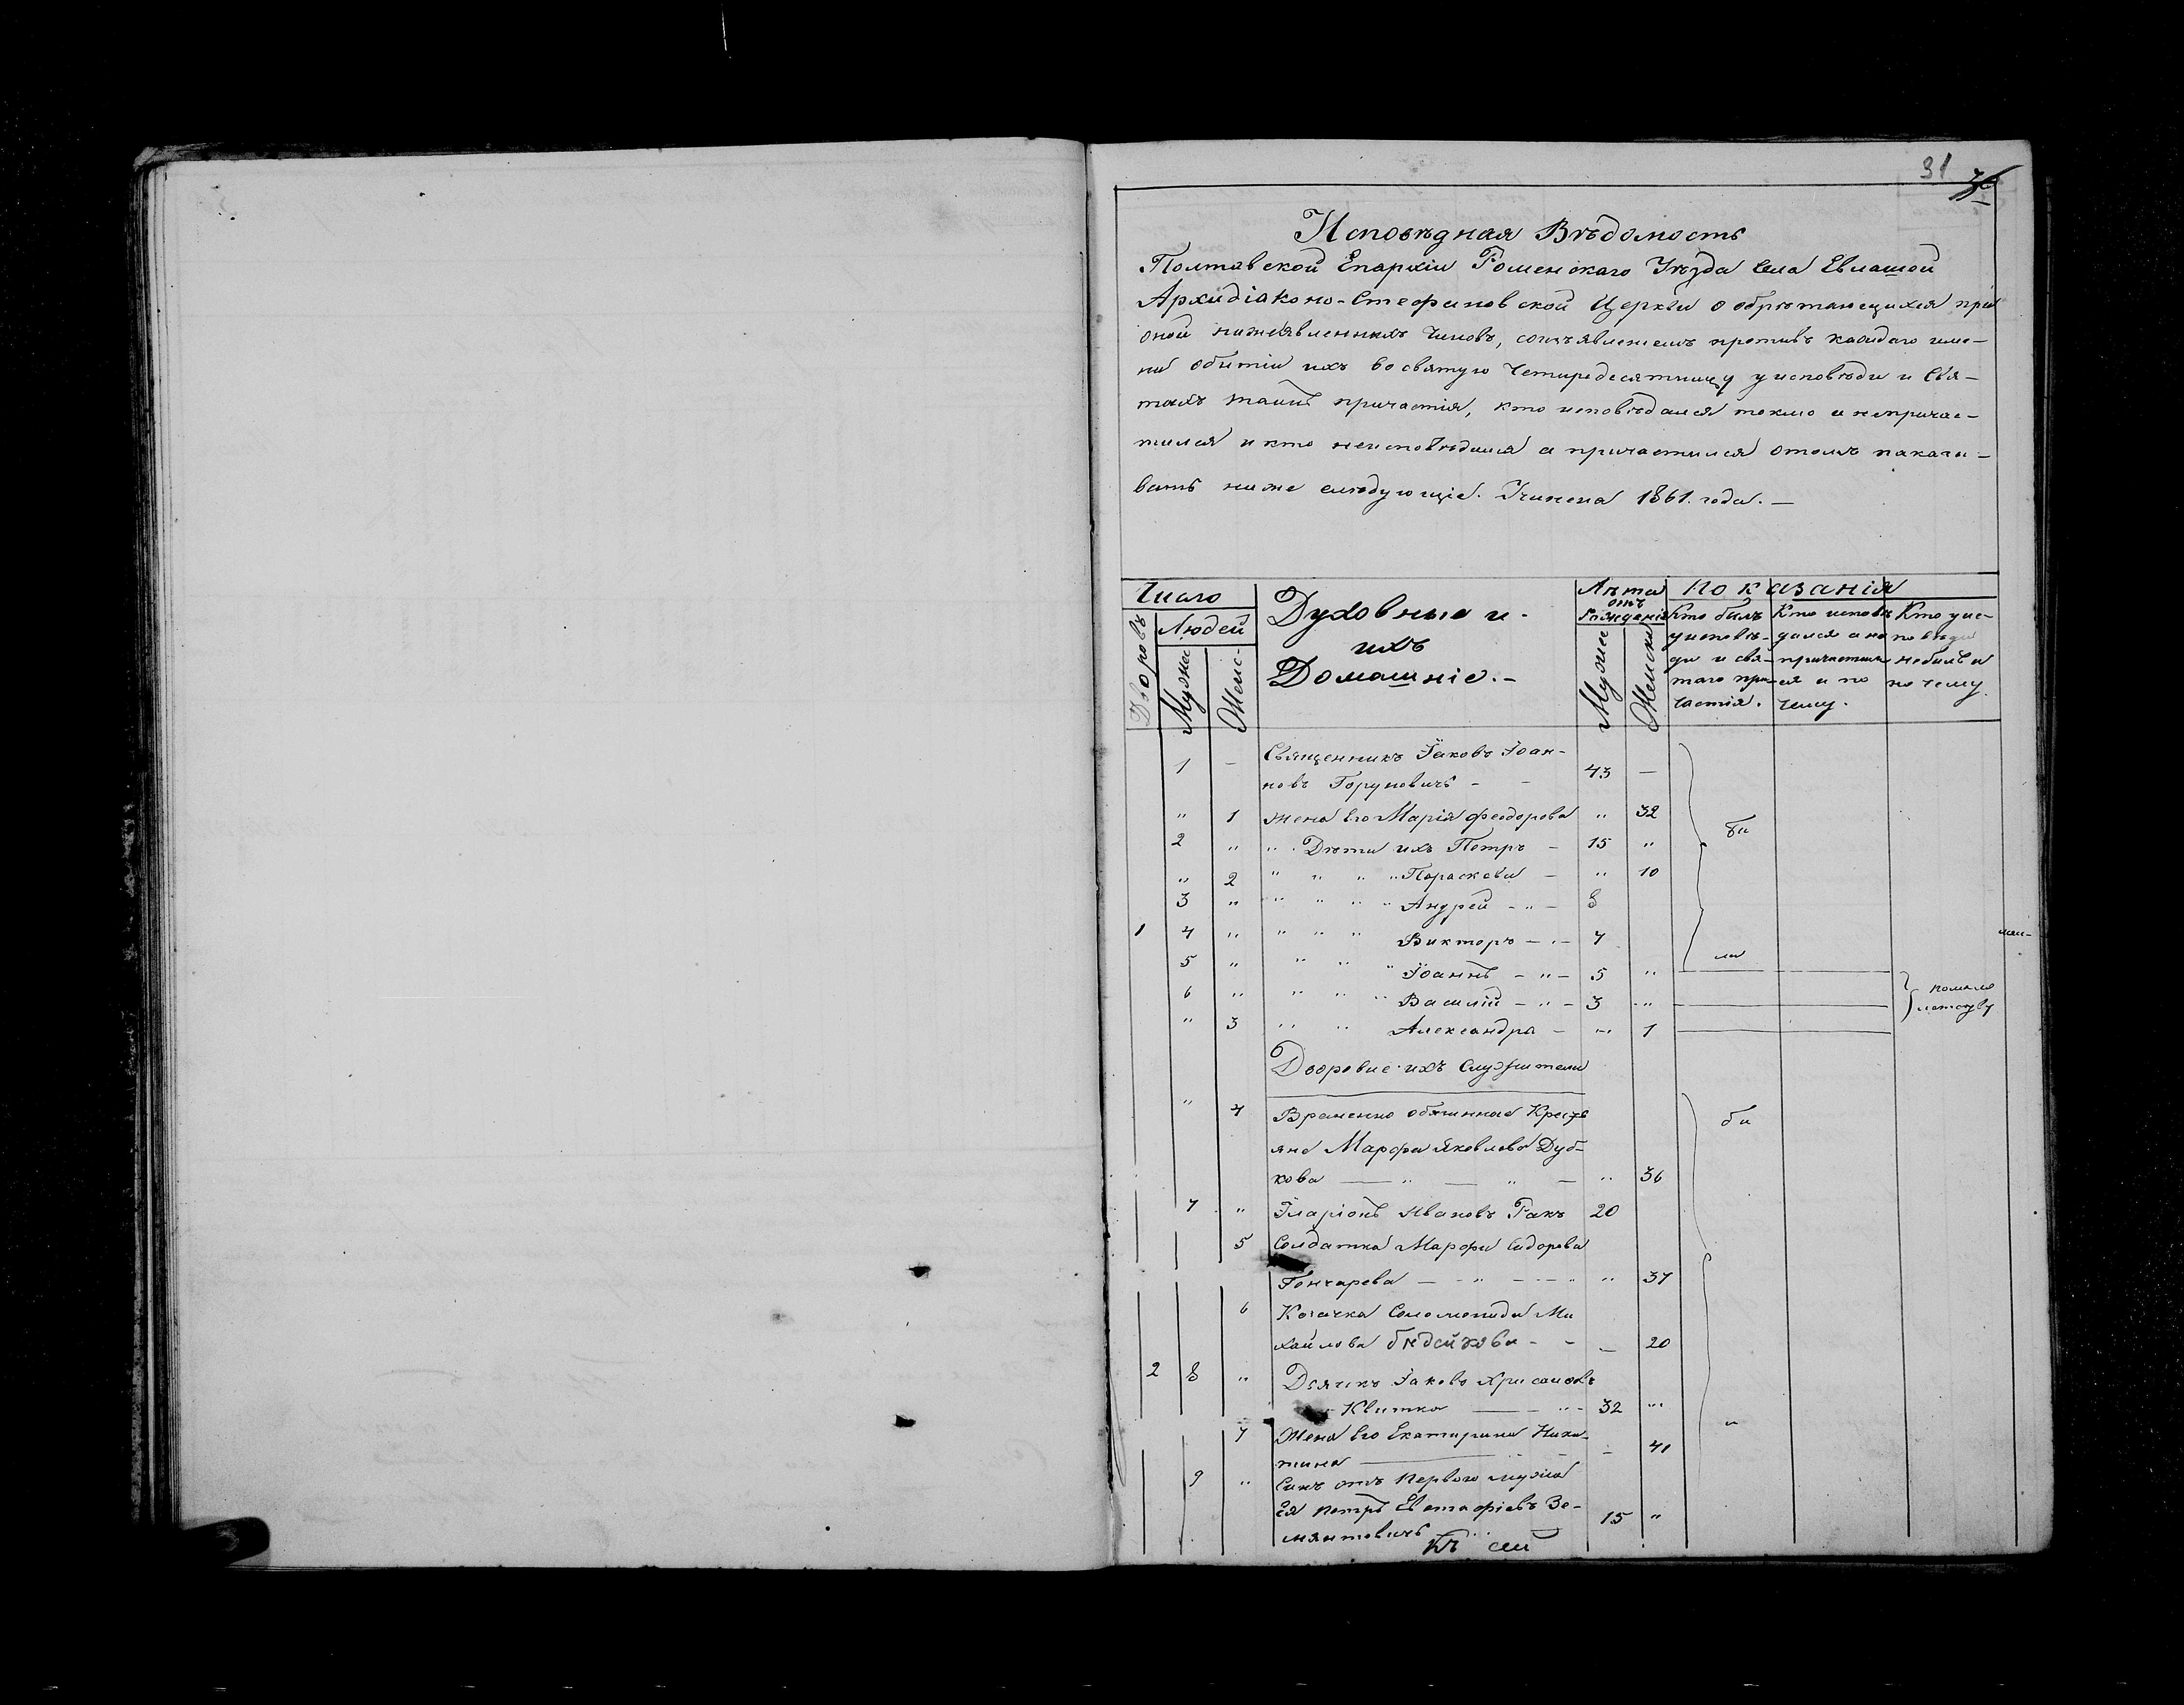 31
Исповѣдная Вѣдомость
Полтавской Епархіи Роменскаго Уѣзда Села Евлашей
Архидіаконо-Стефановской Церкви о обрѣтающихся при
оной нижеявленныхъ чиновъ, сизъявленіемъ противъ каждаго име-
ни обитіи ихъ во святую четиредесятницу уисповѣди и Свя-
тыхъ таинъ причастія, кто исповѣдался токмо а непричас-
тился и кто неисповѣдался а причастился отомъ
ниже слѣдующіе. Учинена 1861. года. —
Число
Дворовъ
Людей
Мужес
Женс-
Духовные и
ихъ
Домашніе. -
Лѣта
отъ
Рожденія
Мужес
Женски
Показанія
Кто билъ
уисповѣ-
ди и свя-
таго при-
частія.
Кто исповѣ
дался а не
причастил
ся и по
чему.
Кто уис-
повѣди
небилъ и
по чему.
1 — Священникъ Іаковъ Іоан-
новъ Горуновичъ - - 43 —
" 1 жена его Марія Феодорова " 32
2 " " Дѣти ихъ Петръ - 15 "
би
" 2 " " " " Параскева - " 10
3 " " " " " Андрей - " - 8
1 4 " " " " Викторъ - " - 7
ли
5 " " " " Іоаннъ - " - 5 "
6 " " " " Василій - " - 3 "
" 3 " " Александра - " 1
по мало
лѣтству
Дворовие ихъ Служители
" 4 Временно обязанная Кресть
яне Марфа Яковлева Дуб-
кова — " — " — " 36
би
7 " Іларіонъ Ивановъ Ракъ 20
5 Солдатка Марфа Сидорова
Гончарева — " — " " 37
6 Козачка Соломонида Ми
хайлова - - — 20
2 8 " Дьячекъ Іаковъ
Квитка — " - 32 "
7 Жена его Екатирина Ники-
тина — - 41
9 " Синъ отъ первого мужа
Ея Петръ Евстафіевъ 15 "